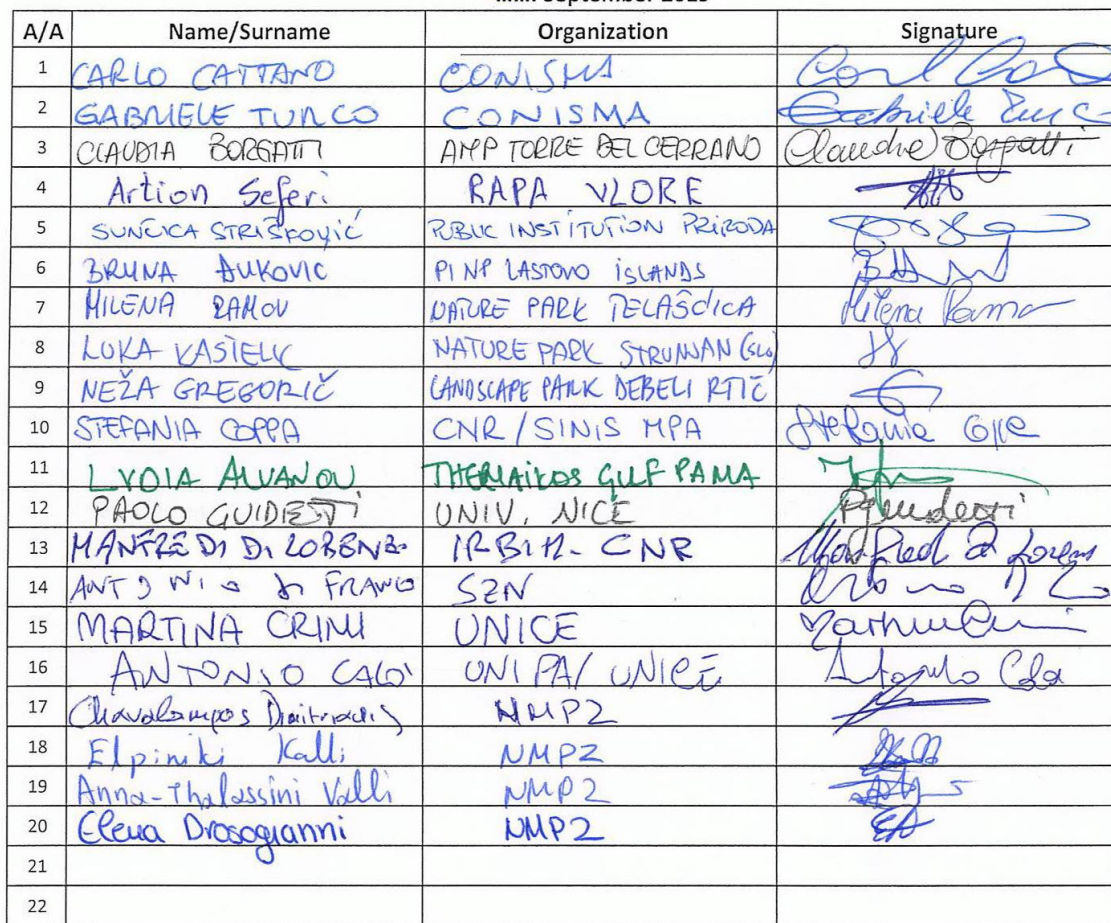 September
A/A Name/Surname Organization Signature
1 CARLO CATTANO CONISMA
2 GABRIELE TURCO CONISMA Gabriele Turc
3 CLAUDIA BORGATTI AMP TORRE DEL CERRANO Claudia Borgatti
4 Artion Seferi RAPA VLORE
5 SUNČICA STRIŠKOVIĆ PUBLIC INSTITUTION PRIRODA
6 BRUNA ĐUKOVIĆ PI NP LASTOVO ISLANDS
7 MILENA RAMOV NATURE PARK TELAŠĆICA Milena Ramo
8 LUKA NATURE PARK STRUNJAN (SLO)
9 NEŽA GREGORIČ LANDSCAPE PARK DEBELI RTIČ
10 STEFANIA COPPA CNR/SINIS MPA Stefania
11 LYDIA ALVANOU THERMAIKOS GULF PAMA
12 PAOLO GUIDETTI UNIV. NICE
13 MANFREDI DI LORENZO IRBIM-CNR
14 ANTONIO DI FRANCO SZN
15 MARTINA CRINI UNICE
16 ANTONIO CALÒ UNIPA/UNICE Antonio Calò
17 Charalampos Dimitriadis NMPZ
18 Elpiniki Kalli NMPZ
19 Anna-Thalassini Valli NMPZ
20 Elena Drosogianni NMPZ
21
22